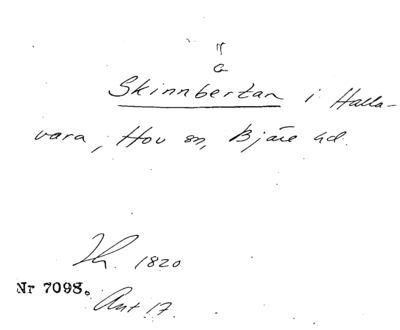 G
Skinnbertan i Halla-
vara, Hov sn, Bjäre hd.
1820
Nr 7098.
Ant. 17.